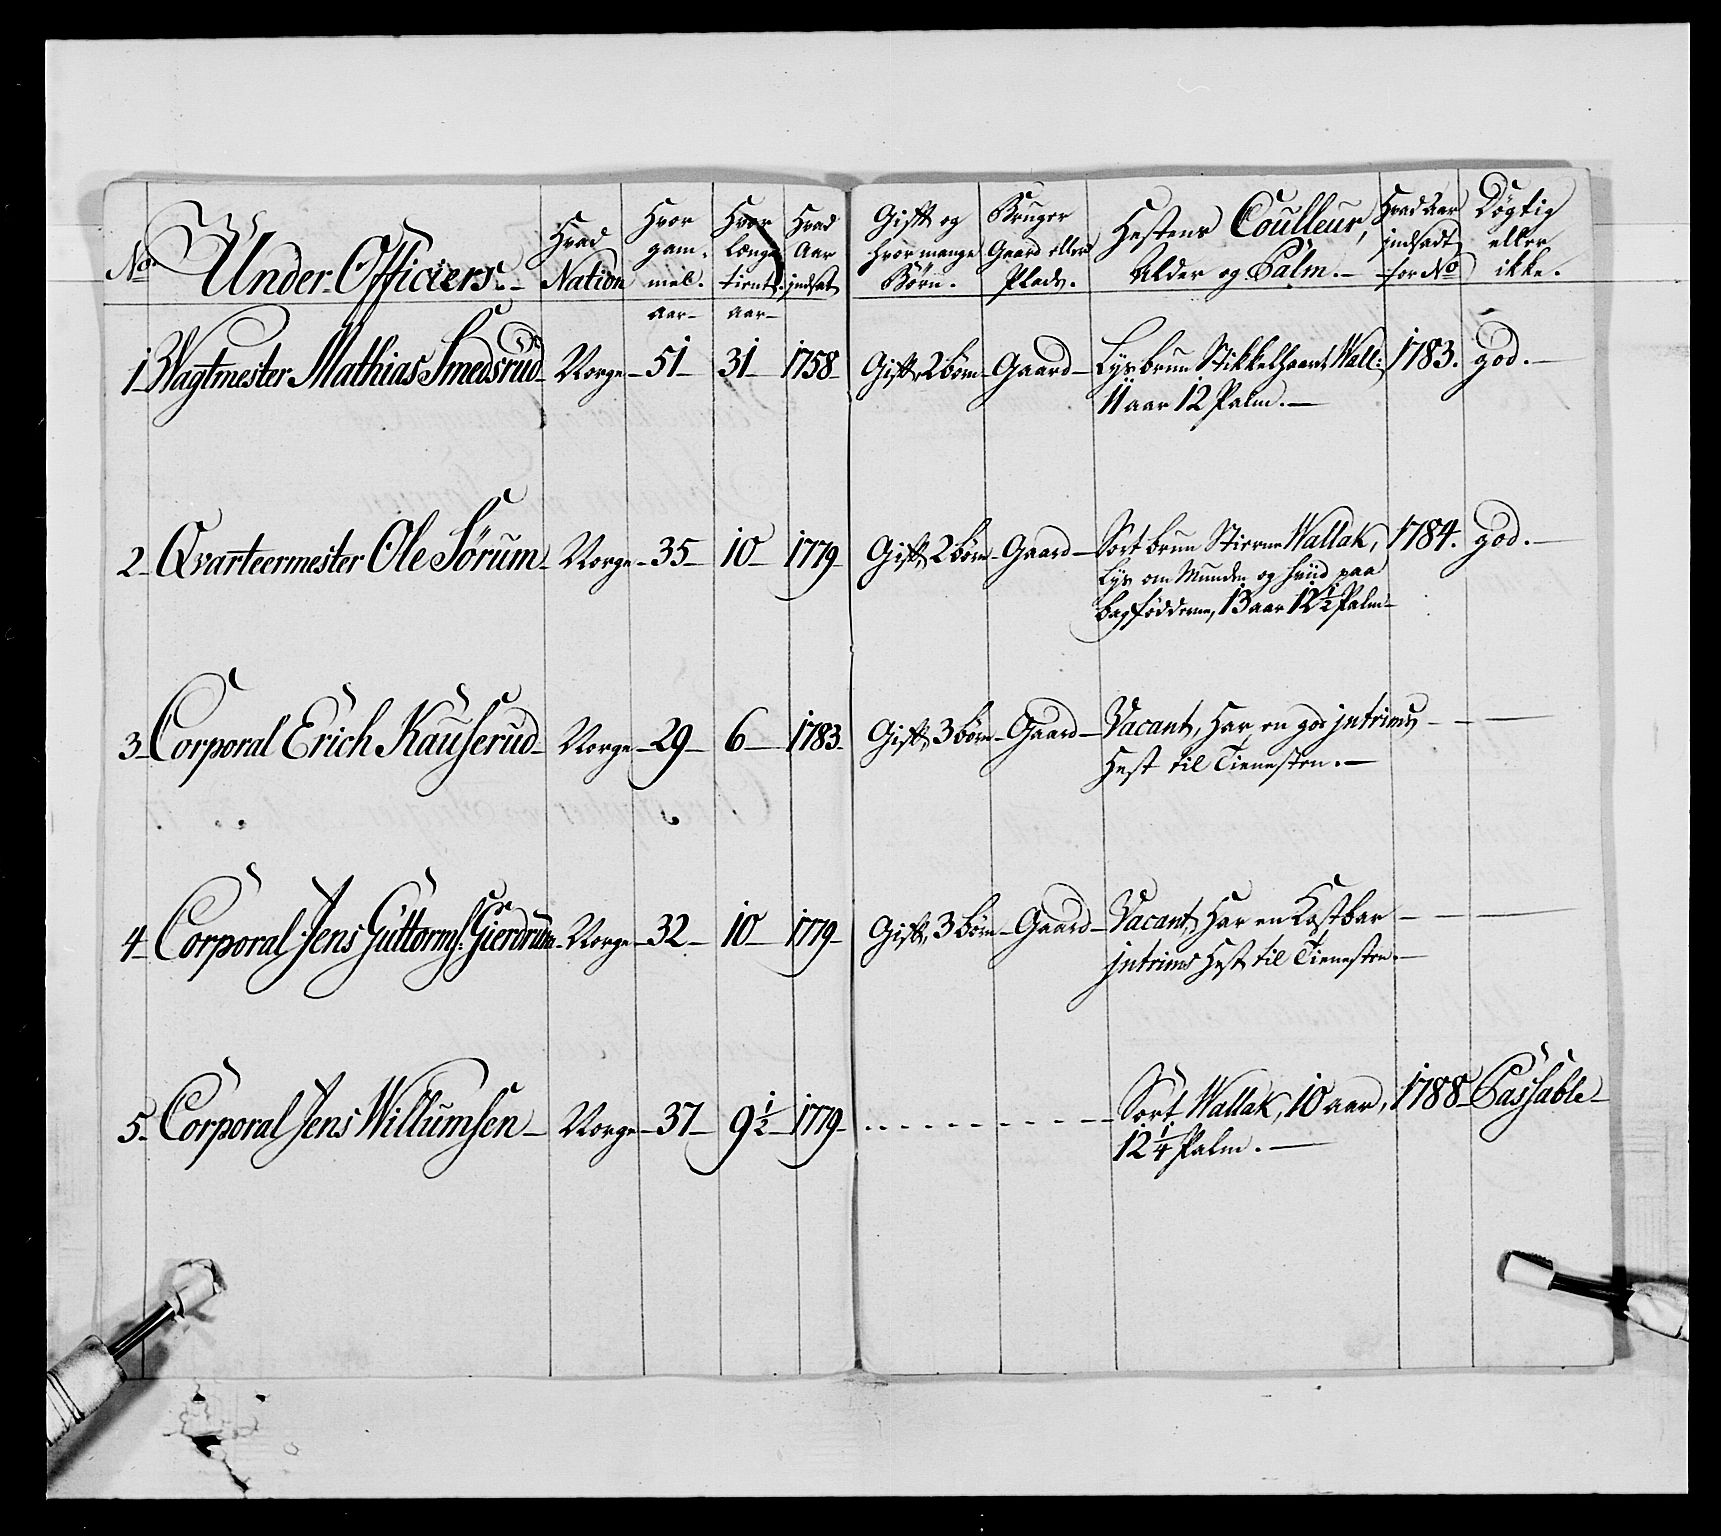 No Under-Officiers. Hvad Nation Hvor gam- mel. Hvor længe tient. Hvad Aar indsat Gift og hvor mange Børn. Bruger Gaard eller Plads. Hestens Coulleur, Alder og Palm. Hvad Aar indsadt for No Døgtig eller ikke.
aar aar
1 Wagtmester Mathias Smedsrud Norge 51 31 1758 Gift 2 børn Gaard Lysbrun Stikkelhaaret Wall: 1783. god.
11 aar 12 Palm.
2 Qvarteermester Ole Sørum Norge 35 10 1779 Gift 2 børn Gaard Sort brun Stiernet Wallak, 1784. god.
Lys om Munden og hviid paa
bagfødderne, 13 aar 12 1/2 Palm
3 Corporal Erich Kauserud Norge 29 6 1783 Gift 3 børn Gaard Vacant, Har en god intrims
Hest til Tienesten.
4 Corporal Jens Guttorms: Gierdrum Norge 32 10 1779 Gift, 3 børn Gaard Vacant, Har en Kostbar
intrims Hest til Tienesten.
5 Corporal Jens Willumsen Norge 37 9 1/2 1779 Sort Wallak, 10 aar, 1788 Passable
12 1/4 Palm.